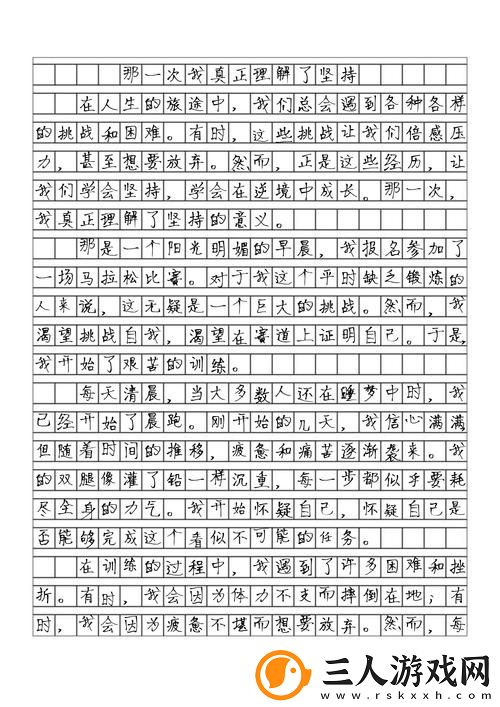 那一次我真正理解了坚持
在人生的旅途中，我们总会遇到各种各样
的挑战和困难。有时，这些挑战让我们倍感压
力，甚至想要放弃。然而，正是这些经历，让
我们学会坚持，学会在逆境中成长。那一次，
我真正理解了坚持的意义。
那是一个阳光明媚的早晨，我报名参加了
一场马拉松比赛。对于我这个平时缺乏锻炼的
人来说，这无疑是一个巨大的挑战。然而，我
渴望挑战自我，渴望在赛道上证明自己。于是，
我开始了艰苦的训练。
每天清晨，当大多数人还在睡梦中时，我
已经开始了晨跑。刚开始的几天，我信心满满，
但随着时间的推移，疲惫和痛苦逐渐袭来。我
的双腿像灌了铅一样沉重，每一步都似乎要耗
尽全身的力气。我开始怀疑自己，怀疑自己是
否能够完成这个看似不可能的任务。
在训练的过程中，我遇到了许多困难和挫
折。有时，我会因为体力不支而摔倒在地；有
时，我会因为疲惫不堪而想要放弃。然而，每
三人游戏网
www.rskxxh.com